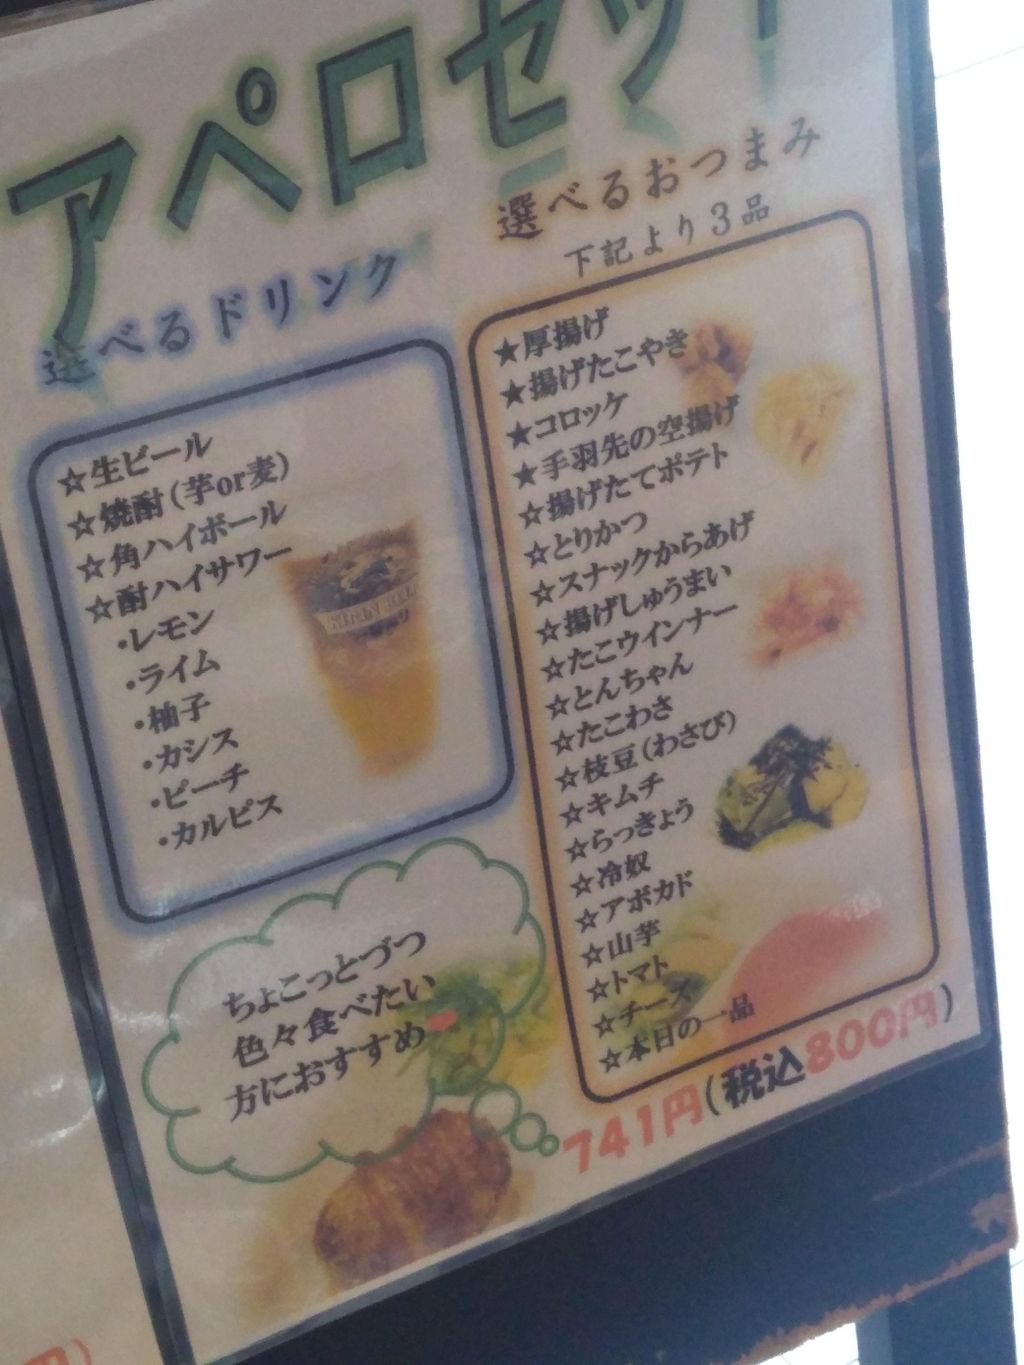 アペロセット
選べるドリンク
☆生ビール
☆焼酎(芋or麦)
☆角ハイボール
☆酎ハイサワー
・レモン
・ライム
・柚子
・カシス
・ピーチ
・カルピス
選べるおつまみ
下記より3品
★厚揚げ
★揚げたこやき
★コロッケ
★手羽先の空揚げ
☆揚げたてポテト
☆とりかつ
☆スナックからあげ
☆揚げしゅうまい
☆たこウインナー
☆とんちゃん
☆たこわさ
☆枝豆(わさび)
☆キムチ
☆らっきょう
☆冷奴
☆アボカド
☆山芋
☆トマト
☆チーズ
☆本日の一品
ちょこっとづつ
色々食べたい
方におすすめ
741円(税込800円)
円)